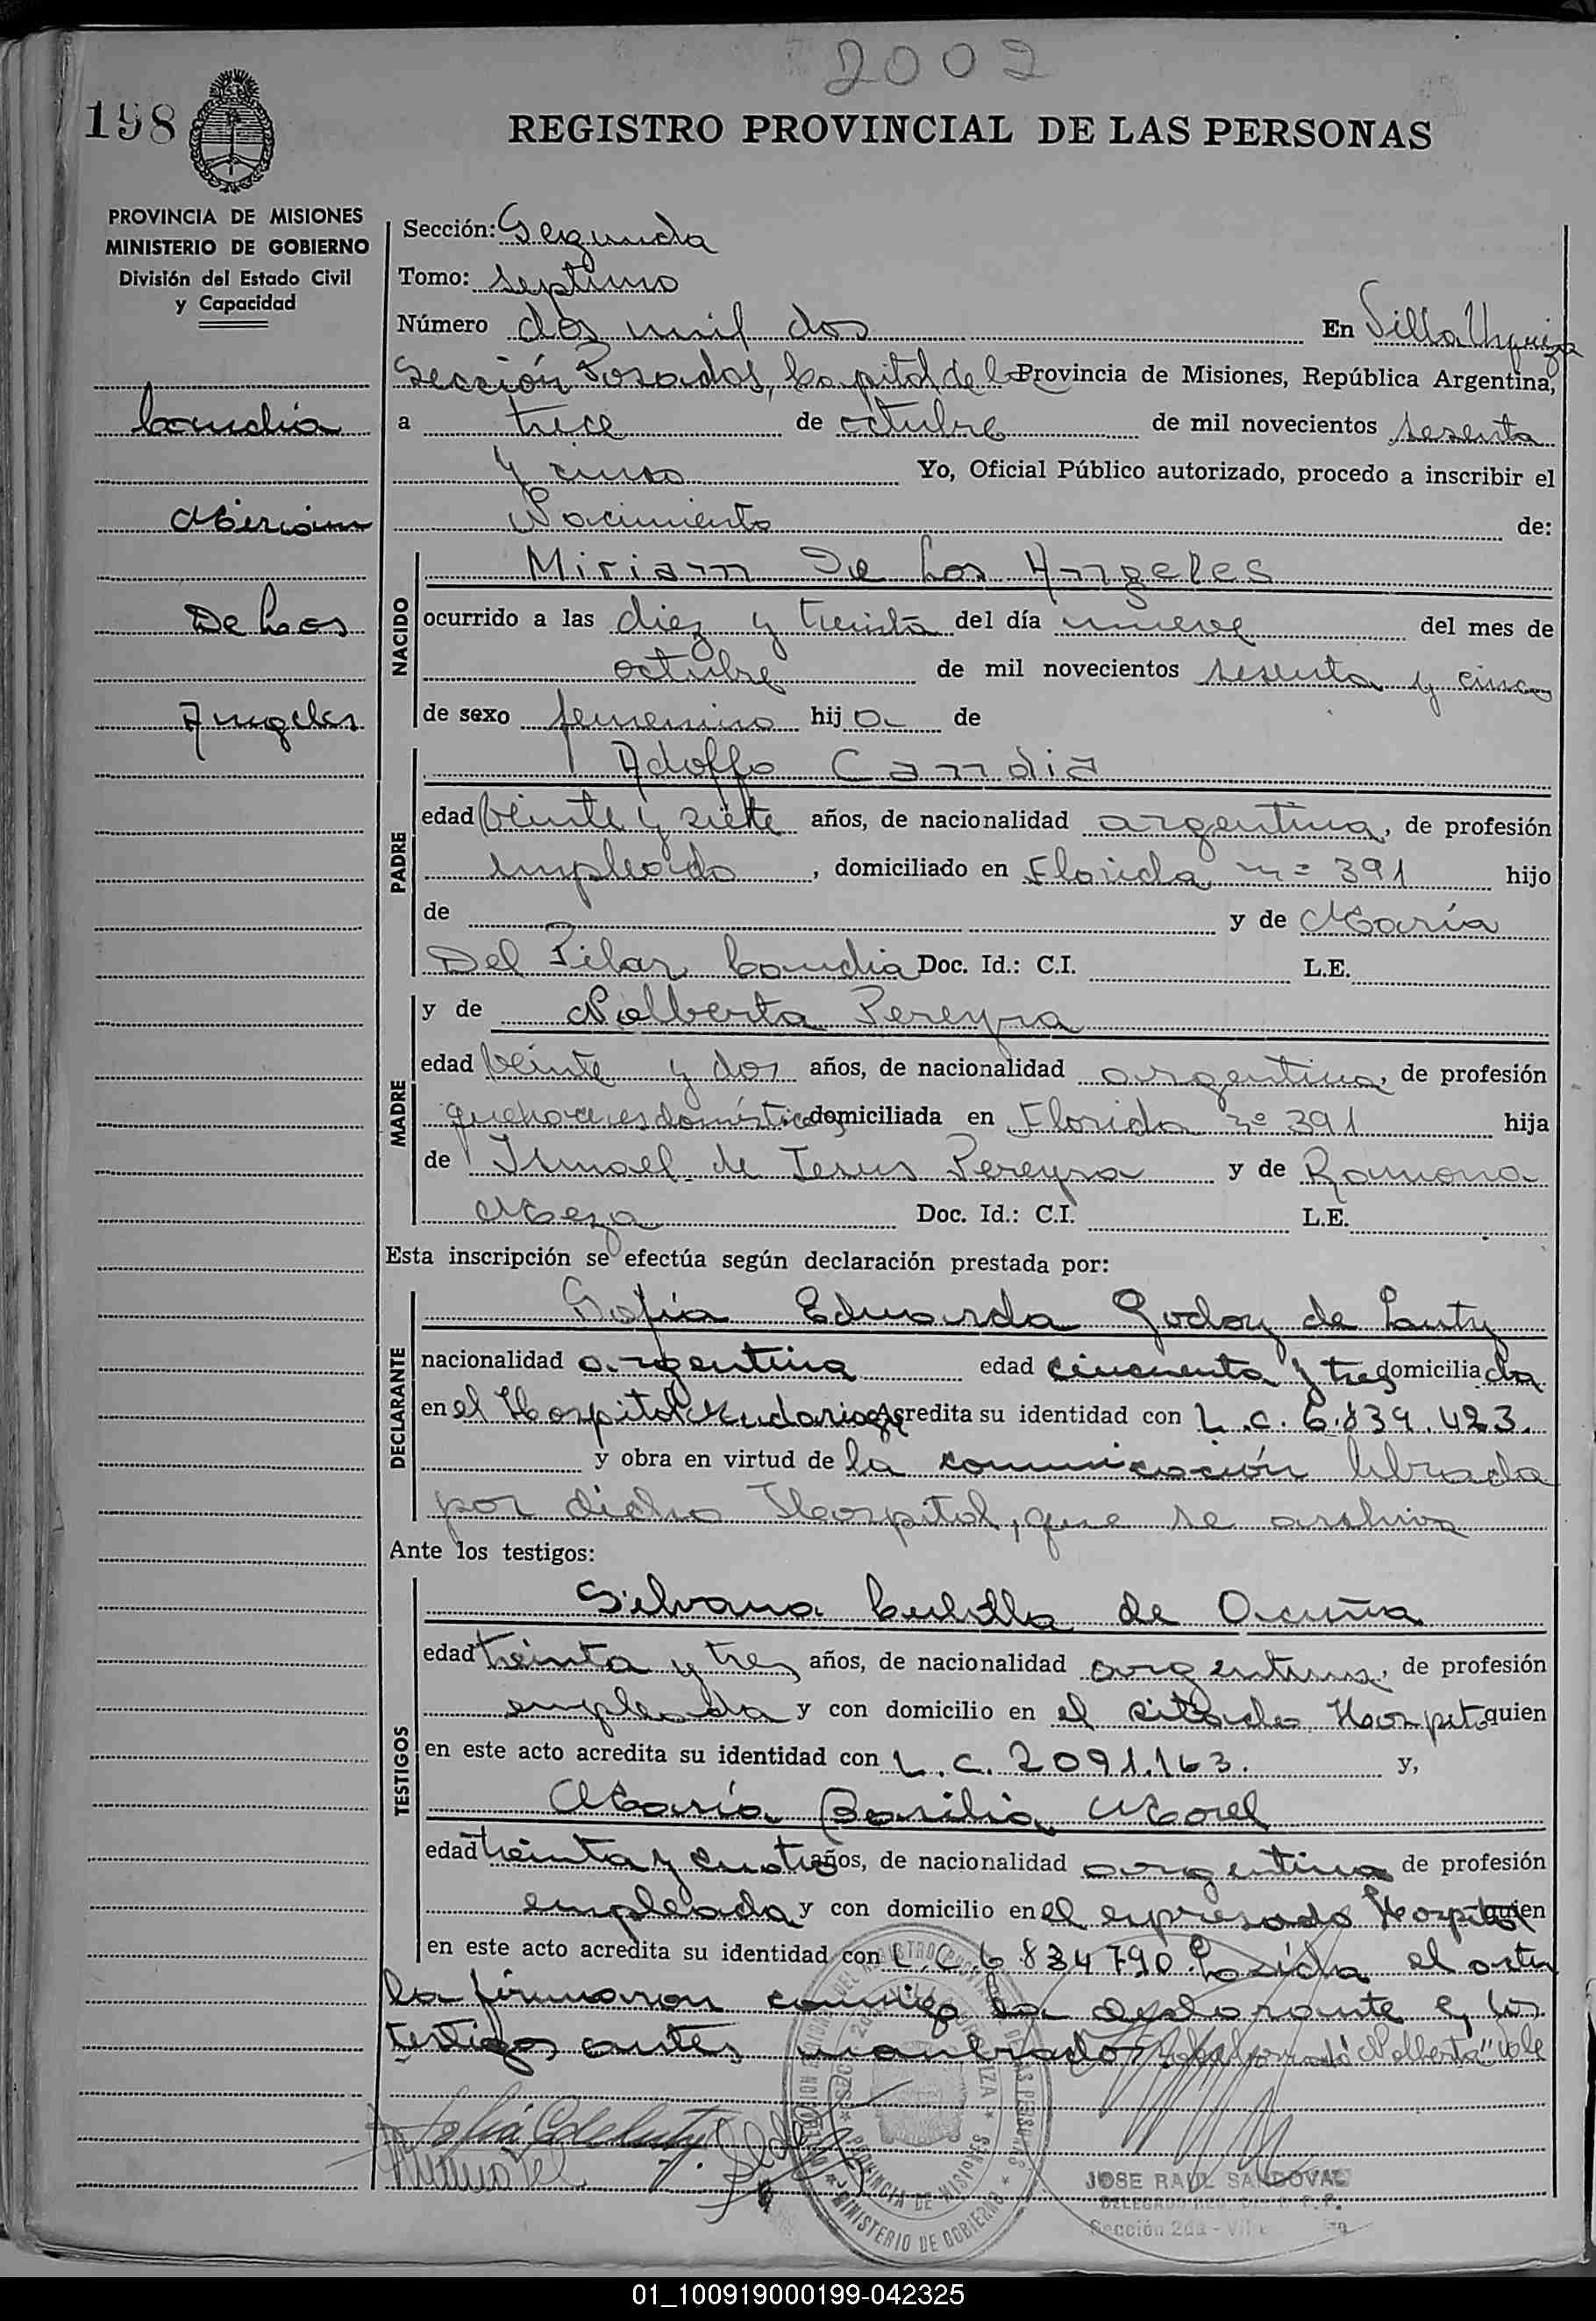 2002
198
REGISTRO PROVINCIAL DE LAS PERSONAS
PROVINCIA DE MISIONES
MINISTERIO DE GOBIERNO
División del Estado Civil
y Capacidad
Candia
Miriam
De Los
Angeles
Sección: Segunda
Tomo: septimo
Número dos mil dos En Villa Urquiza
Sección Posadas, Capital de la Provincia de Misiones, República Argentina,
a trece de octubre de mil novecientos sesenta
y cinco Yo, Oficial Público autorizado, procedo a inscribir el
Nacimiento de:
NACIDO
Miriam De Los Angeles
ocurrido a las diez y treinta del día nueve del mes de
octubre de mil novecientos sesenta y cinco
de sexo femenino hija de
PADRE
Adolfo Candia
edad veinte y siete años, de nacionalidad argentina, de profesión
empleado, domiciliado en Florida nº 391 hijo
de y de María
Del Pilar Candia Doc. Id.: C.I. L.E.
MADRE
y de Nolberta Pereyra
edad veinte y dos años, de nacionalidad argentina, de profesión
quehaceres domésticos domiciliada en Florida nº 391 hija
de Ismael de Jesus Pereyra y de Ramona
Meza Doc. Id.: C.I. L.E.
Esta inscripción se efectúa según declaración prestada por:
DECLARANTE
Sofía Eduarda Godoy de Lauty
nacionalidad argentina edad cincuenta y tres domiciliada
en el Hospital Madariaga Acredita su identidad con L.C. 6.839.423.
y obra en virtud de la comunicación librada
por dicho Hospital, que se archiva
Ante los testigos:
TESTIGOS
Silvana Cubilla de Acuña
edad treinta y tres años, de nacionalidad argentina, de profesión
empleada y con domicilio en el citado Hospital quien
en este acto acredita su identidad con L.C. 2091.163. y,
María Basilia Morel
edad treinta y cuatro años, de nacionalidad argentina de profesión
empleada y con domicilio en el expresado Hospital quien
en este acto acredita su identidad con L.C. 6834790. Leída el acta
la firmaron conmigo la declarante y los
testigos antes nombrados "Nolberta" vale
JOSE RAUL SANDOVAL
Sección 2da
MINISTERIO DE GOBIERNO
PROVINCIA DE MISIONES
01_100919000199-042325